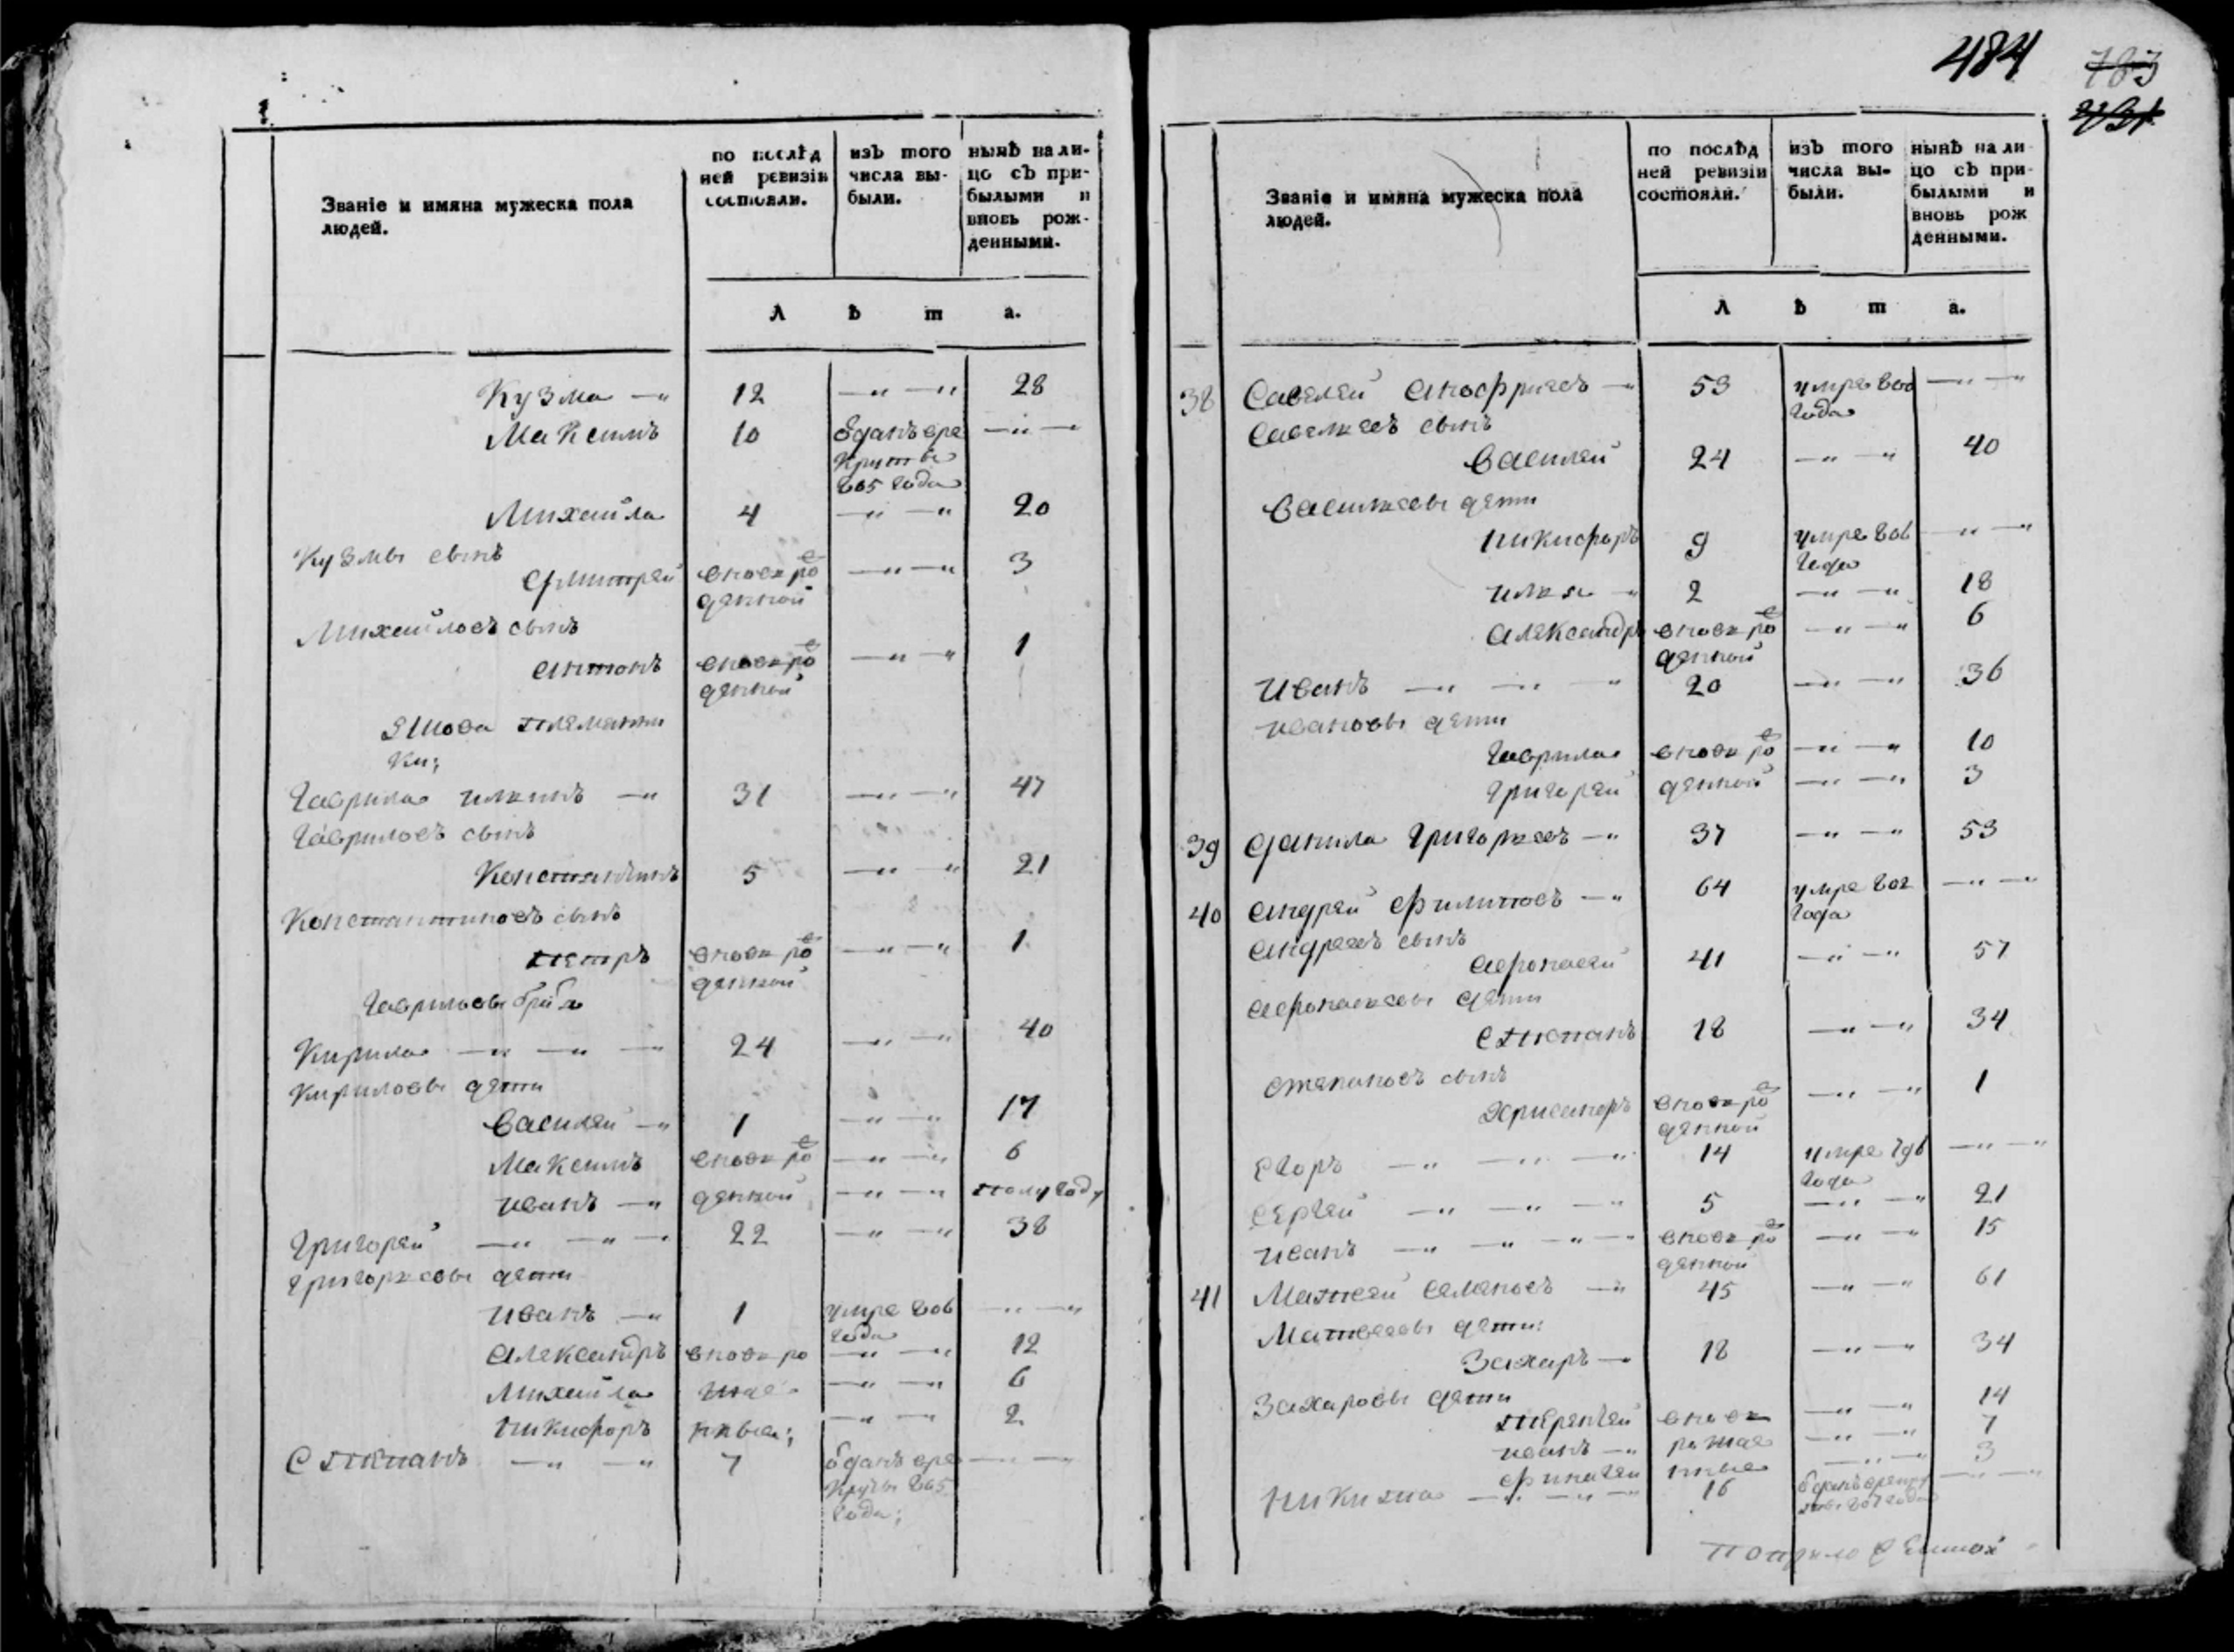 484
783
Званіе и имяна мужеска пола
людей.
по послѣд
ней ревизіи
состояли.
изъ того
числа вы-
были.
нынѣ на ли-
цо съ при-
былыми и
вновь рож-
денными.
Л ѣ т а.
Кузма 12 28
Максимъ 10 Отданъ вре 
круты
805 года
Михайла 4 20
Кузмы сынъ
Дмитрей вновь ро 3
жденной
Михайловъ сынъ
Антонъ вновь ро 1
жденной
племянни
ки;
Гаврила Ильинъ 31 47
Гавриловъ сынъ
Константинъ 5 21
Константиновъ сынъ
Петръ вновь ро 1
жденной
Гавриловы братья
Кирила 24 40
Кириловы дети
Василей 1 17
Максимъ вновь ро 6
Иванъ жденной полугоду
Григорей 22 38
Григорьевы дети
Иванъ 1 умре 806
года
Александръ вновь ро 12
Михайла 6
Никифоръ нные; 2
Степанъ 7 отданъ вре
круты 805
года;
Званіе и имяна мужеска пола
людей.
по послѣд
ней ревизіи
состояли.
изъ того
числа вы-
были.
нынѣ на ли
цо съ при-
былыми и
вновь рож
денными.
Л ѣ т а.
38 Савелей Анофриевъ 53 умре 800
года
Савельевъ сынъ
Василей 24 40
Васильевы дети
Никифоръ 9 умре 806
года
Илья 2 18
Александръ вновь ро 6
жденной
Иванъ 20 36
Ивановы дети
Гаврила вновь ро 10
Григорей жденной 3
39 Данила Григорьевъ 37 53
40 Андрей Филиповъ 64 умре 802
года
Андреевъ сынъ
Афонасей 41 57
Афонасьевы дети
Степанъ 18 34
Степановъ сынъ
Хрисанфъ вновь ро 1
жденной
Егоръ 14 умре 796
года
Сергей 5 21
Иванъ вновь ро 15
жденной
41 Матвей Семеновъ 45 61
Матвеевы дети:
Захаръ 18 34
Захаровы дети
Терентей вновь 14
Иванъ рожде 7
нные 3
Никита 16 отданъ врекру
ты 807 года